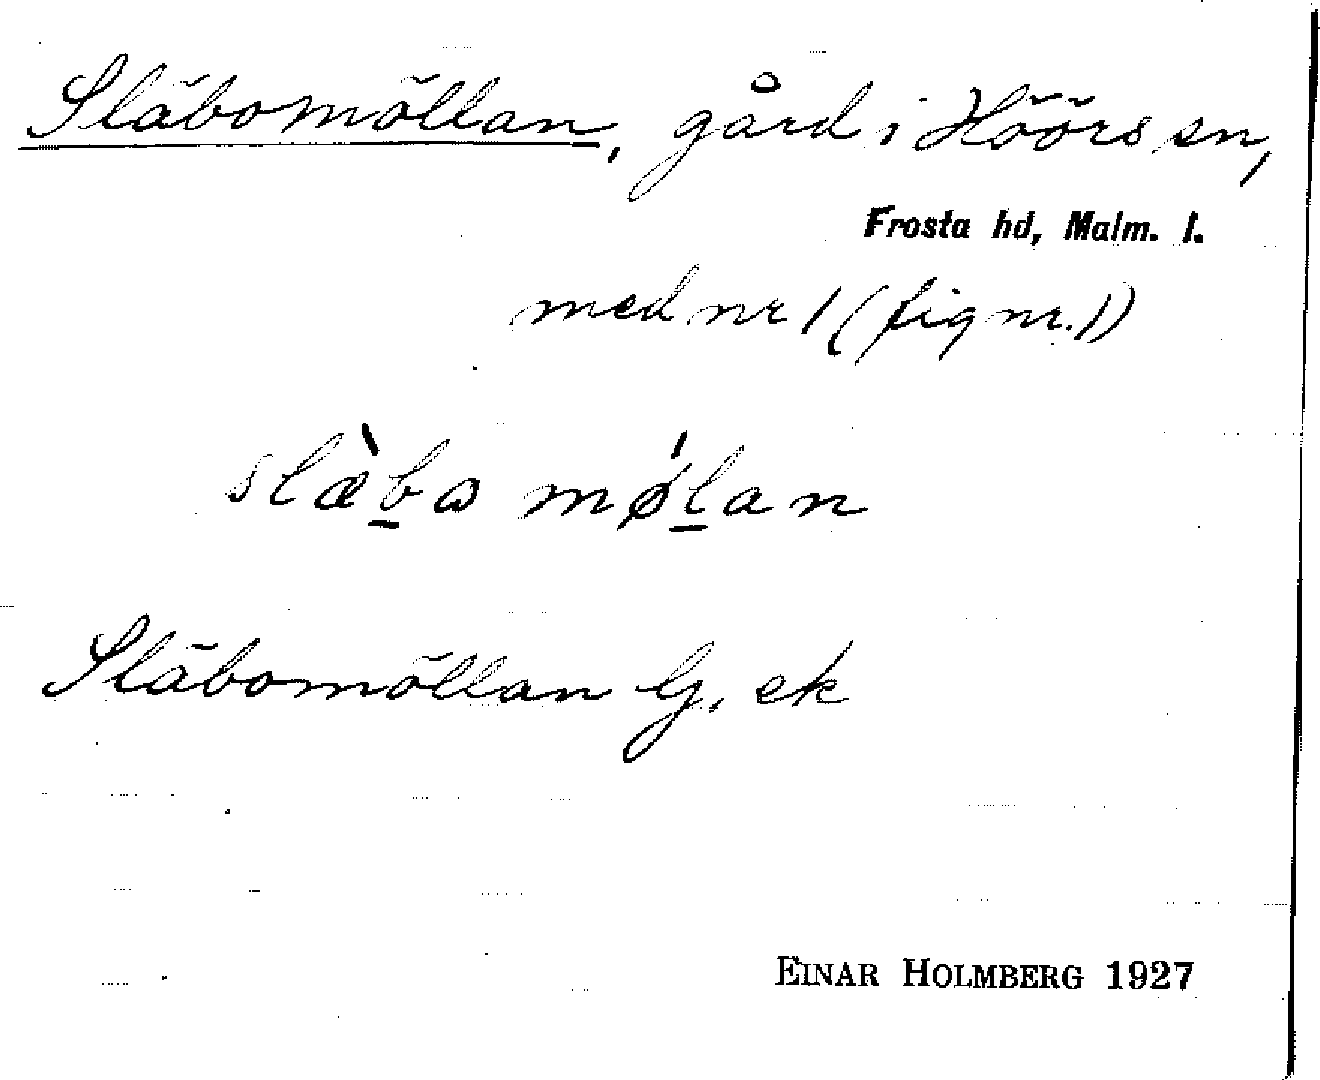 Släbomöllan, gård i Höörs sn,
Frosta hd, Malm. l.
med nr 1 (fig nr. 1)
slæ̀bɷ møĺan
Släbomöllan G, ek
EINAR HOLMBERG 1927